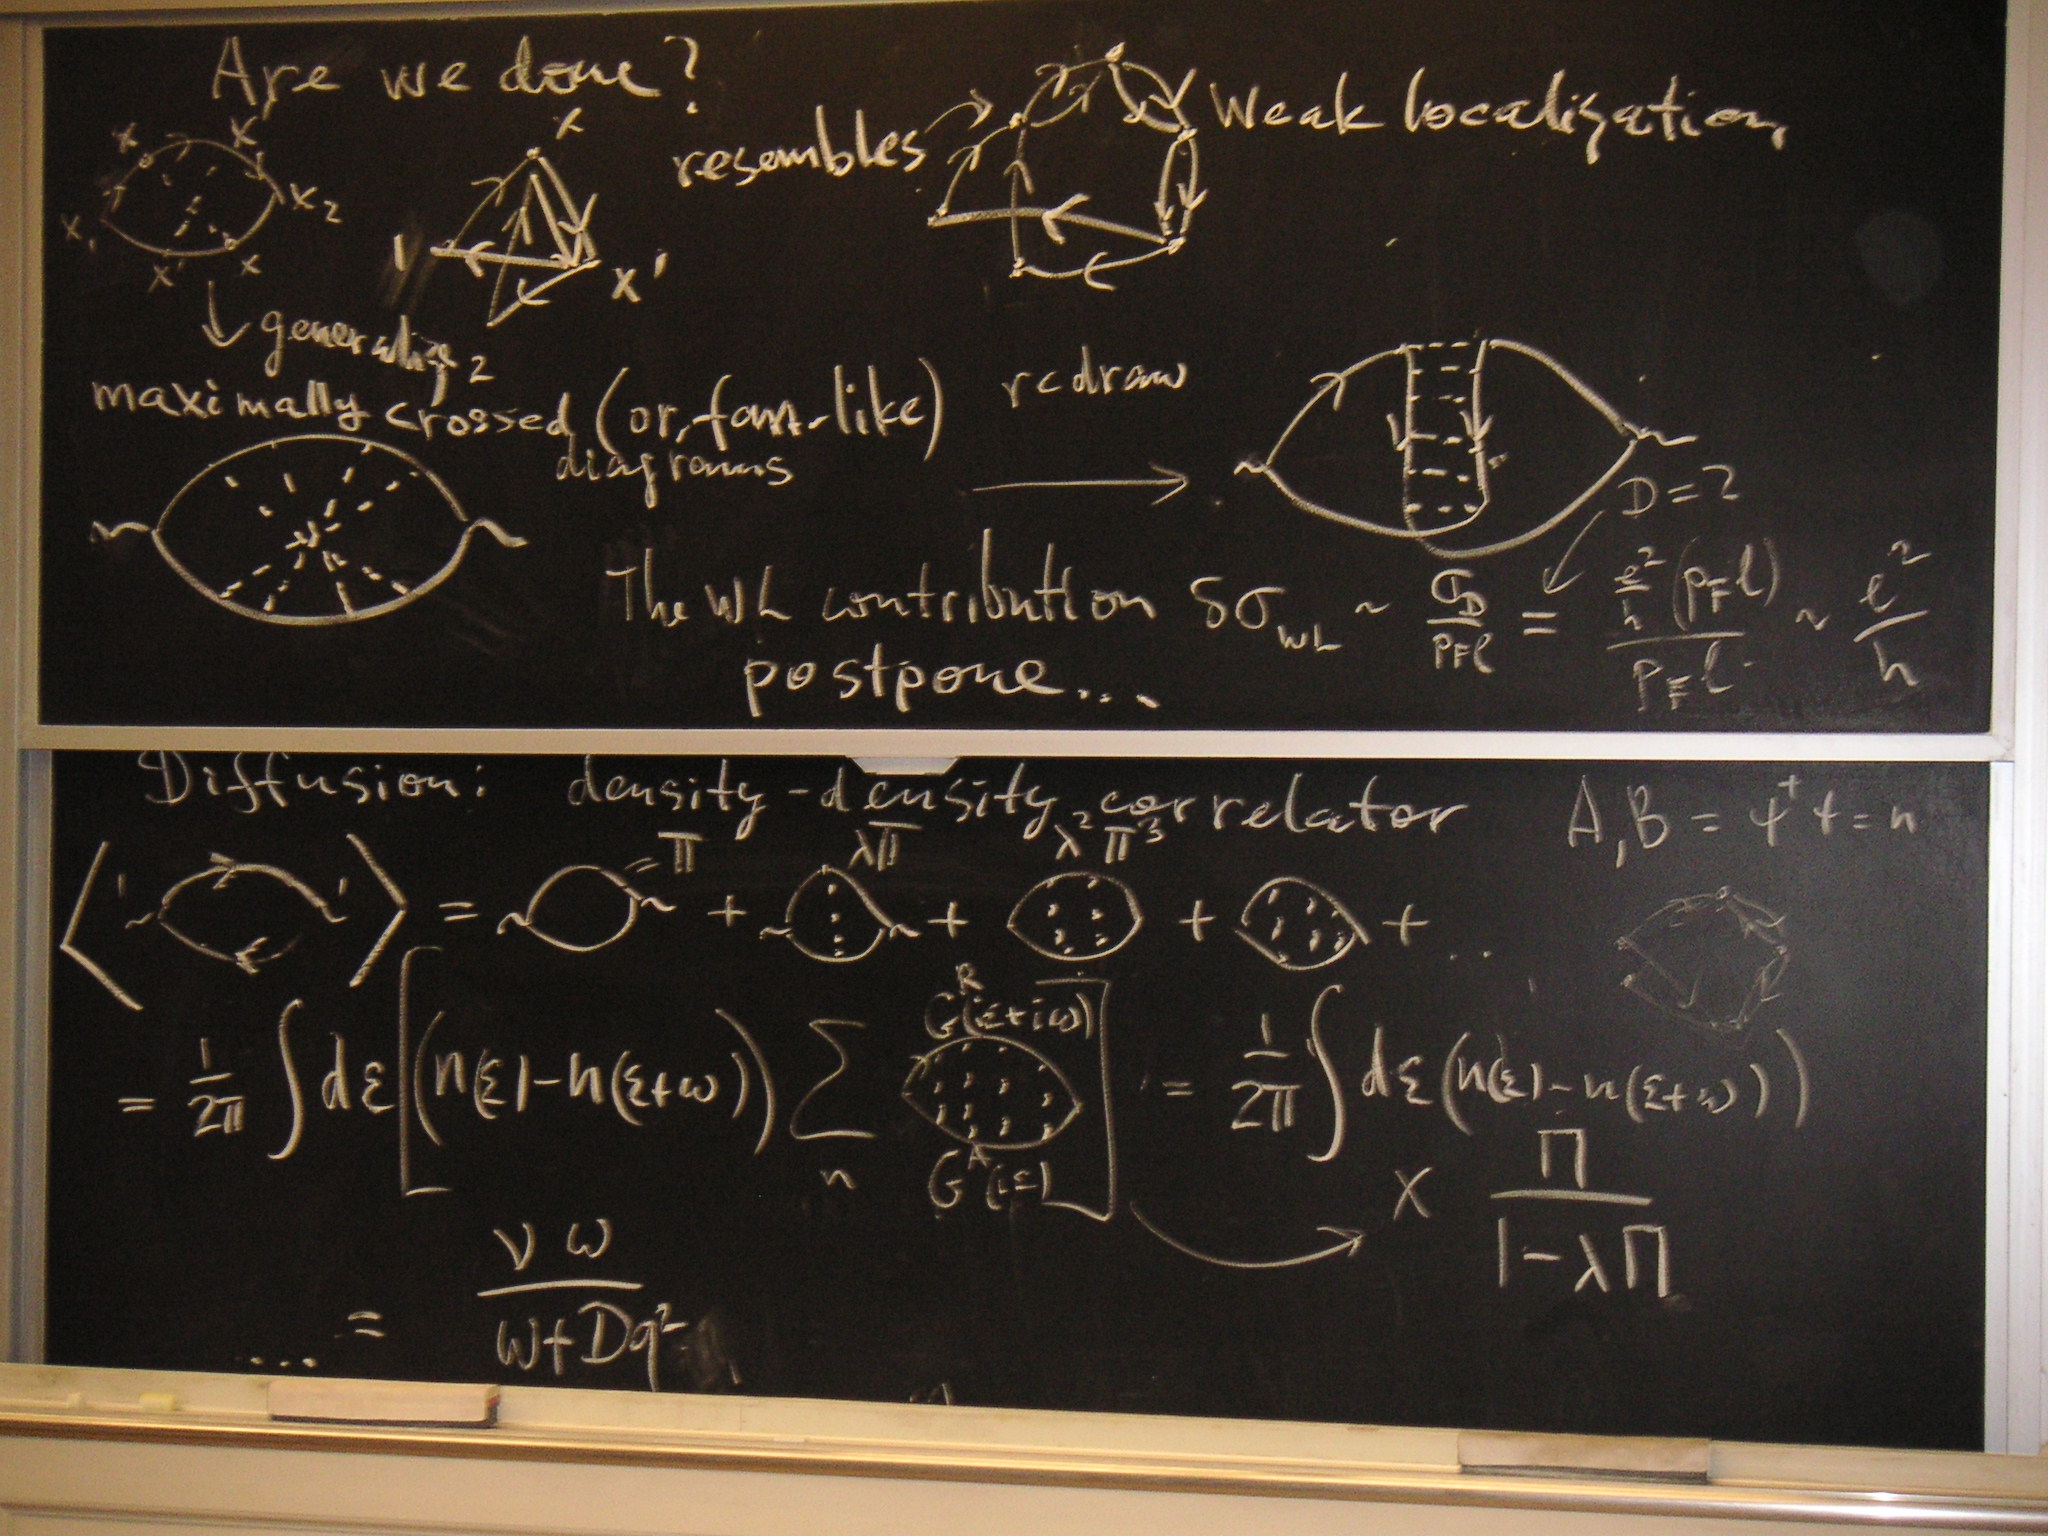 Are we done?
x x x₁ x₂ x' x
x 1 x'
resembles
Weak localization
↓ generalize
maximally crossed (or, fan-like)
diagrams
redraw
D=2
The WL contribution δσ_WL ~ σ_D/p_Fl = e²/h (p_Fl)/p_Fl ~ e²/h
postpone...
Diffusion: density-density correlator A,B = ψ⁺ψ = n
= Π λΠ λ²Π³
= + + + + ...
= 1/2π ∫dε[(n(ε)-n(ε+ω)) Σ_n G^R(iε+iω) G^A(iε)] = 1/2π ∫dε(n(ε)-n(ε+ω))
× Π/(1-λΠ)
... = νω/(ω+Dq²)